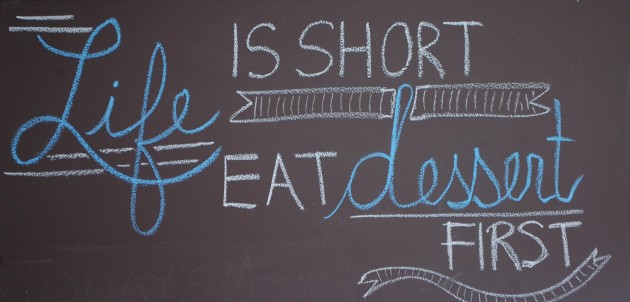 Life IS SHORT
EAT dessert
FIRST